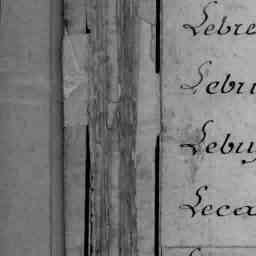 Lebre
Lebru
Lebuy
Leca